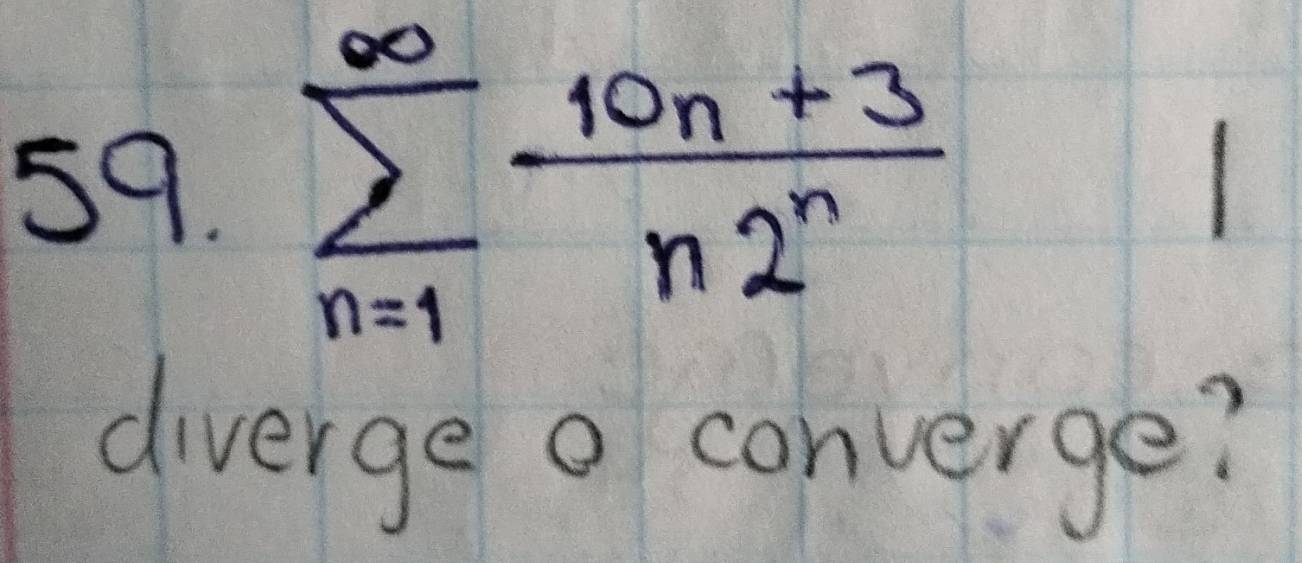 59. $\sum_{n=1}^{\infty} \frac{10n + 3}{n2^n}$ |
diverge o converge?